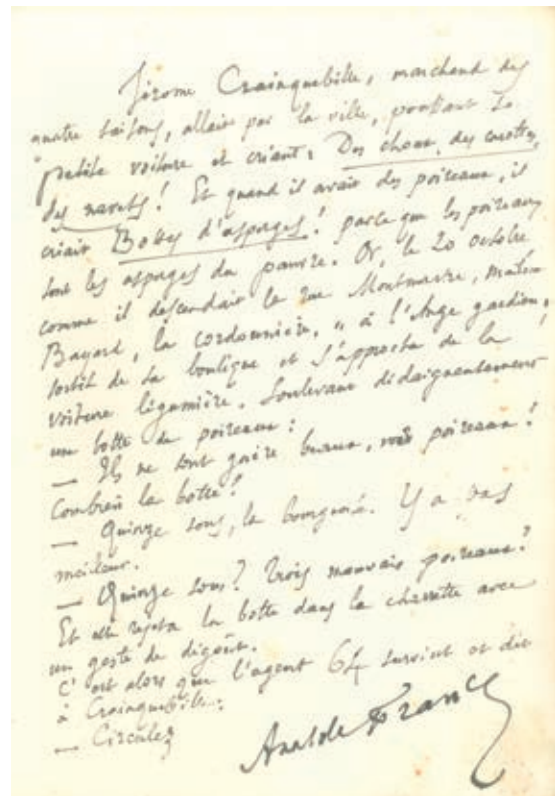 Jérome Crainquebille, marchand des
quatre saisons, allait par la ville, poussant sa
petite voiture et criant: Des choux, des carottes,
des navets! Et quand il avait des poireaux, il
criait Bottes d'asperges! parce que les poireaux
sont les asperges du pauvre. Or, le 20 octobre
comme il descendait la rue Montmartre, madame
Bayard, la cordonnière, " à l'Ange gardien,
sortit de sa boutique et s'approcha de la
voiture légumière. Soulevant dédaigneusement
une botte de poireaux:
— Ils ne sont guère beaux, vos poireaux!
Combien la botte?
— Quinze sous, la bourgeoise. Y a pas
meilleur.
— Quinze sous? Trois mauvais poireaux?
Et elle rejeta la botte dans la charrette avec
un geste de dégoût.
C'est alors que l'agent 64 survint et dit
à Crainquebille:
— Circulez
Anatole France